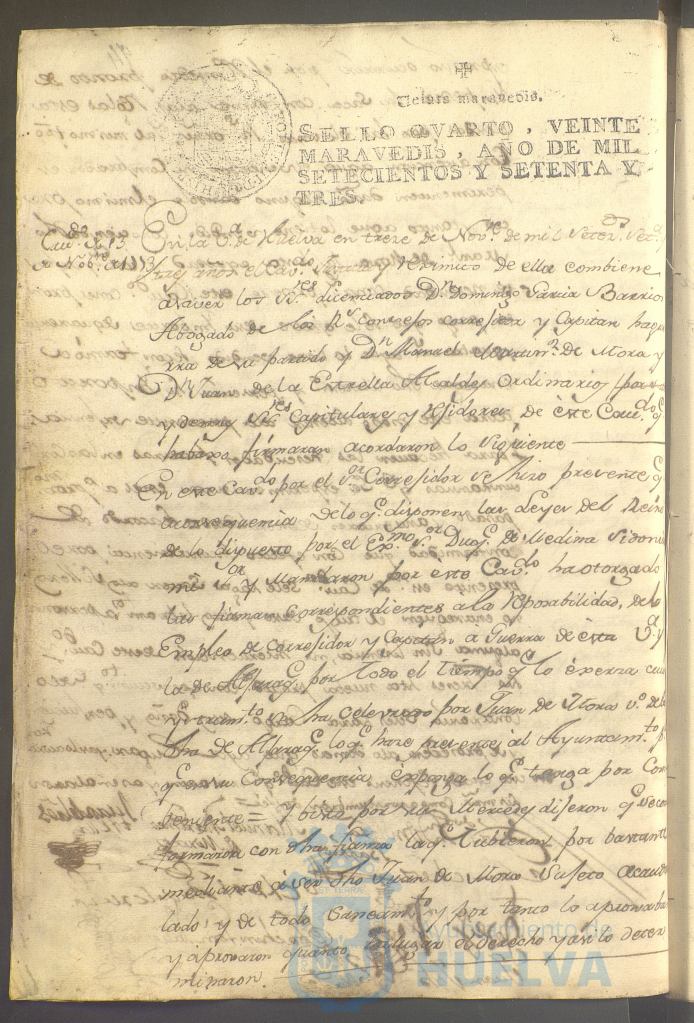 Veinte maravedis.
SELLO QVARTO, VEINTE
MARAVEDIS, AÑO DE MIL
SETECIENTOS Y SETENTA Y
TRES.
Cav.do de 13
de Nob.re de 1773
En la V.a de Huelva en trece de Nov.re de mil Setez.s Set.a
y tres años el Cav. Justicia y reximto de ella combiene
a saver los S.res Licenciados D.n Domingo Garcia Barrio
Abogado de los R.s Consejos corregidor y Capitan ha gue
rra de su partido y D.n Manuel de Mora y
D.n Juan de la Estrella Alcaldes Ordinarios por
y demas S.res Capitulares y Rejidores de este Cav.do q
habaxo firmaran acordaron lo siguiente
En este Cav.do por el S.or Corregidor se hizo presente q
a consequencia de lo q. disponen las Leyes del Reino
de lo dispuesto por el Ex.mo S.or Duq.e de Medina Sidonia
mi S.or y Mandaron por este Cav.do ha otorgado
las fianzas correspondientes a la responsabilidad, de lo
Empleo de corregidor y Capitan a Guerra de esta V.a y
la de Aljaraq.e por todo el tiempo q.e lo exerza cu
ha celevrado por Juan de Mora v.o de la
dha de Aljaraq.e lo q.e hace presente al Ayuntam.to p
q.e en su Consequencia exponga lo q.e tenga por Con
beniente = y visto por sus Mercedes dijeron q.e se con
formaron con dha fianza la q.e tubieron por bastante
mediante a ser dho Juan de Mora Sujeto acauda
lado y de todo y por tanto lo aprovaba
y aprovaron quanto ha lugar en derecho y asi lo deter
minaron.
Ayuntamiento de
HUELVA